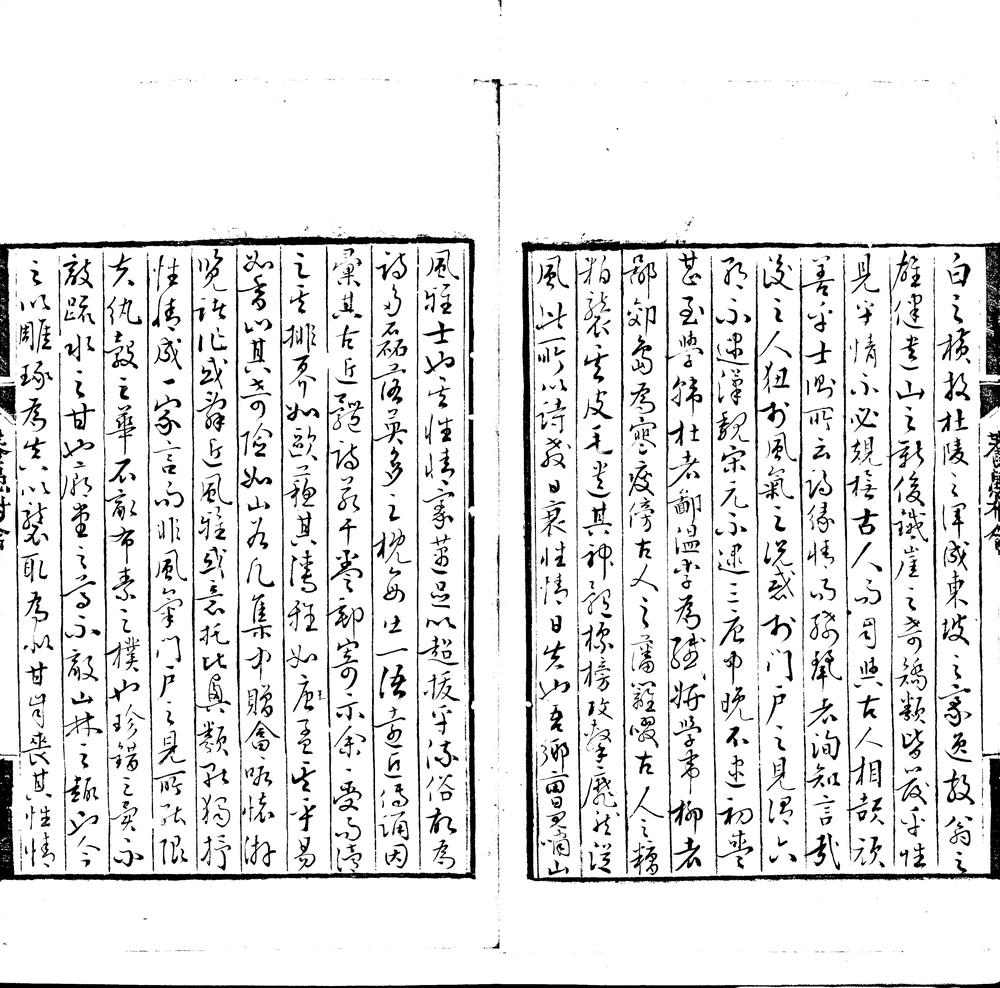 白之橫放杜陵之渾成東坡之豪逸放翁之
雄健遺山之新俊鐵崖之奇矯類皆發乎性
見乎情不必規橅古人而自與古人相頡頏
善乎士衡所云詩緣情而綺靡者洵知言哉
後之人狃於風氣之說惑於門戶之見謂六
朝不逮漢魏宋元不逮三唐中晚不逮初盛
甚至學韓杜者鄙溫李為纖妍學韋柳者
鄙郊島為寒瘦傍古人之藩籬啜古人之糟
粕襲其皮毛遺其神髓標榜攻擊靡然從
風此所以詩教日衰性情日失也吾鄉嘯山
風雅士也其性情豪邁足以超拔乎流俗故為
詩多磊落英多之概每出一語遠近傳誦因
彙其古近體詩若干卷郵寄示余余受而讀
之其排奡如歐蘇其淸雅如唐孟其平易
如香山其奇險如山谷凡集中贈會咏懷游
覽諸作或辭近風雅或意托比興類能獨抒
性情成一家言而非風氣門戶之見所能限
夫紈縠之華不敵布素之樸也珍錯之羹不
敵疏水之甘也廊堂之高不敵山林之趣也今
之以雕琢為夫以襲取為 甘 喪其性情